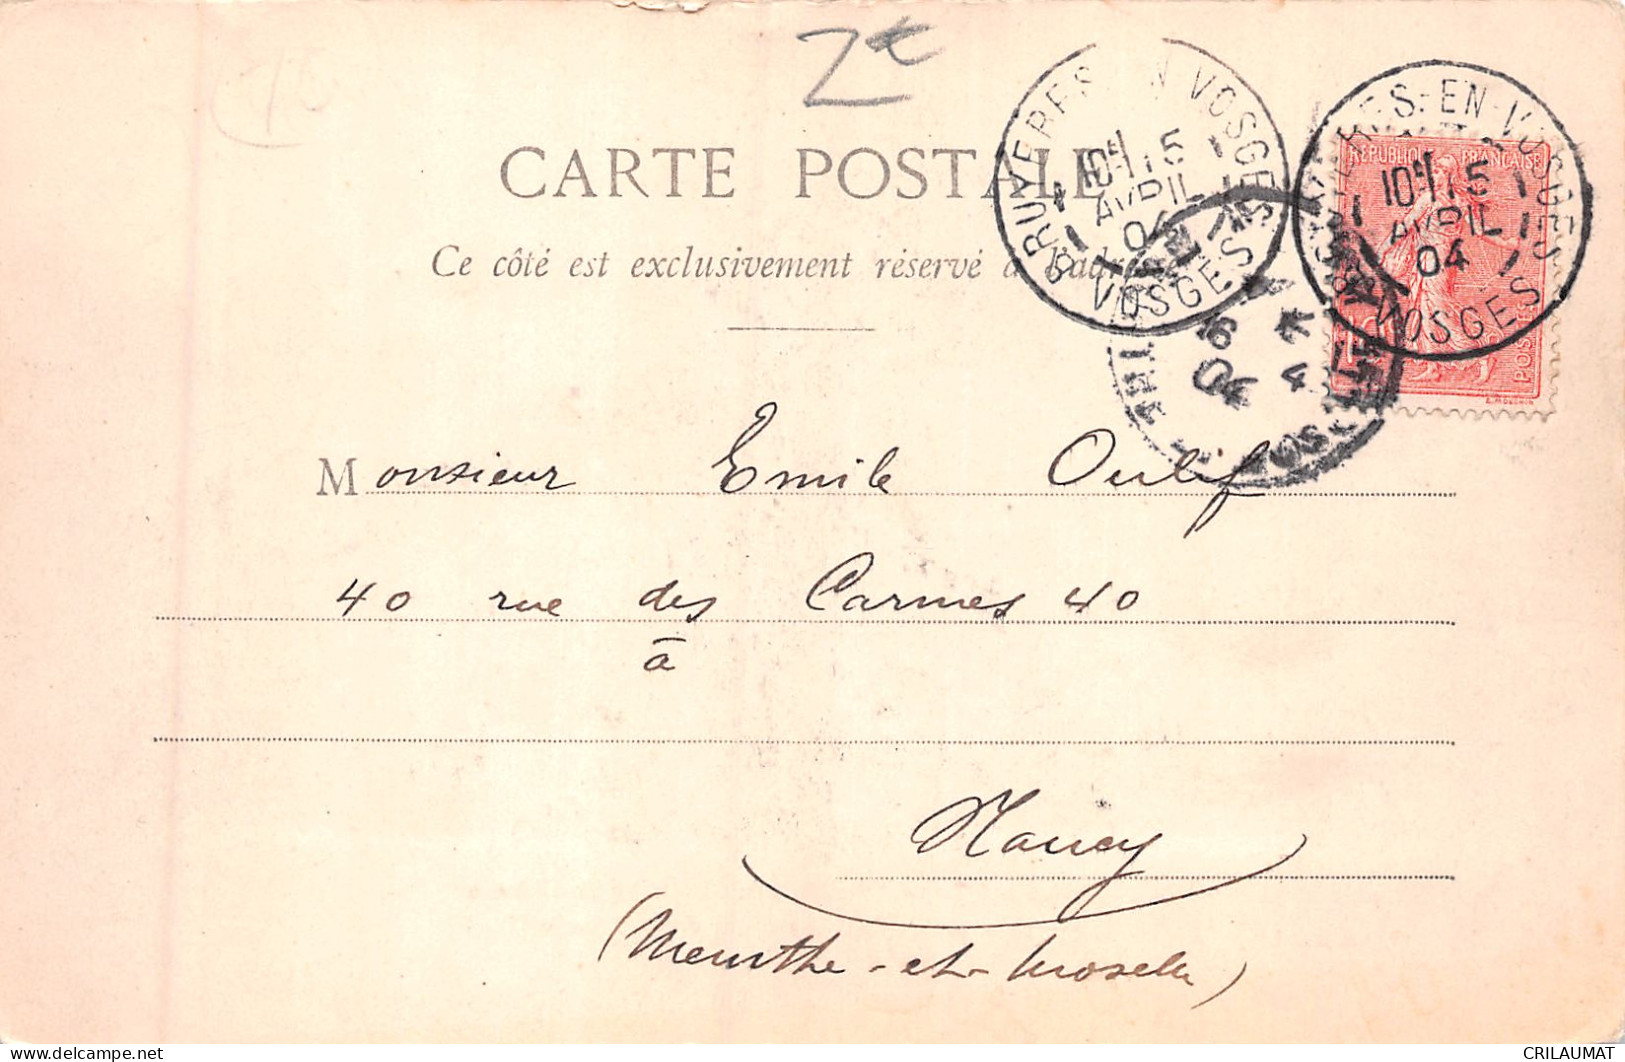 2€
CARTE POSTALE
Ce côté est exclusivement réservé à l'adresse
BRUYERES-EN-VOSGES
10H 15
AVRIL
04
VOSGES
BRUYERES-EN-VOSGES
10H 15
AVRIL
04
VOSGES
REPUBLIQUE FRANÇAISE
POSTES
16
04
Monsieur Emile Oulif
40 rue des Carmes 40
à
Nancy
(Meurthe-et-Moselle)
CRILAUMAT